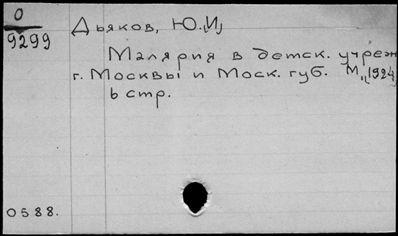 0
9299
Дьяков, Ю.И.
Малярия в детск. учреж
г. Москвы и Моск. губ. М., 1924,
6 стр.
0588.